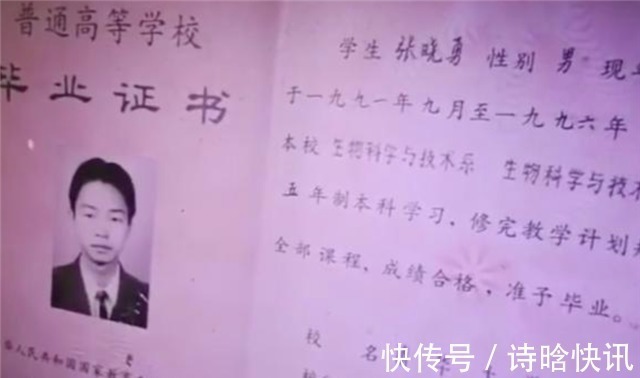 普通高等学校
毕业证书
学生 张晓勇 性别 男 现
于一九九一年九月至一九九六年
本校 生物科学与技术系 生物科学与技术
五年制本科学习,修完教学计划
全部课程,成绩合格,准予毕业。
校 名
人民共和国国家教
快传号 / 诗晗快讯